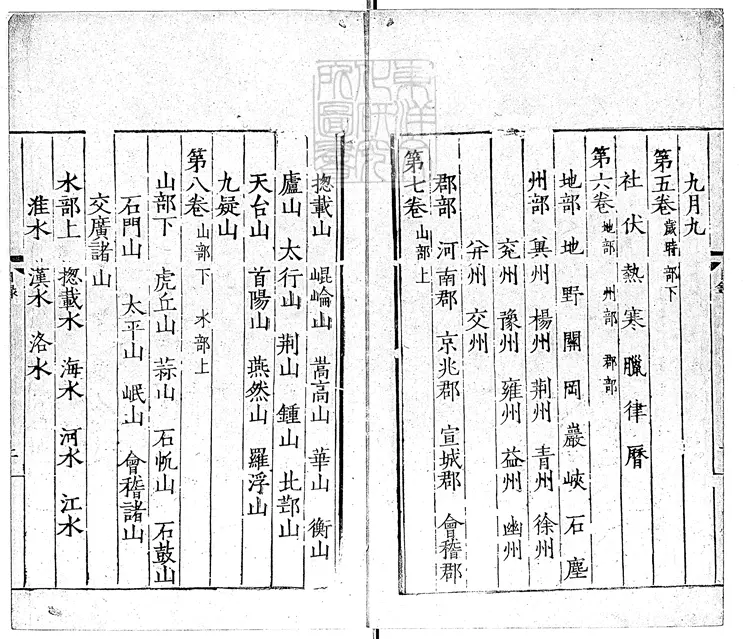 九月九
第五卷 歲時部下
社 伏 熱 寒 臘 律 曆
第六卷 地部 州部 郡部
地部 地 野 關 岡 巖 峽 石 塵
州部 兾州 楊州 荆州 青州 徐州
兖州 豫州 雍州 益州 幽州
并州 交州
郡部 河南郡 京兆郡 宣城郡 會稽郡
第七卷 山部上
揔載山 崐崘山 嵩高山 華山 衡山
廬山 太行山 荆山 鍾山 北邙山
天台山 首陽山 燕然山 羅浮山
九疑山
第八卷 山部下 水部上
山部下 虎丘山 蒜山 石帆山 石鼓山
石門山 太平山 岷山 會稽諸山
交廣諸山
水部上 揔載水 海水 河水 江水
淮水 漢水 洛水